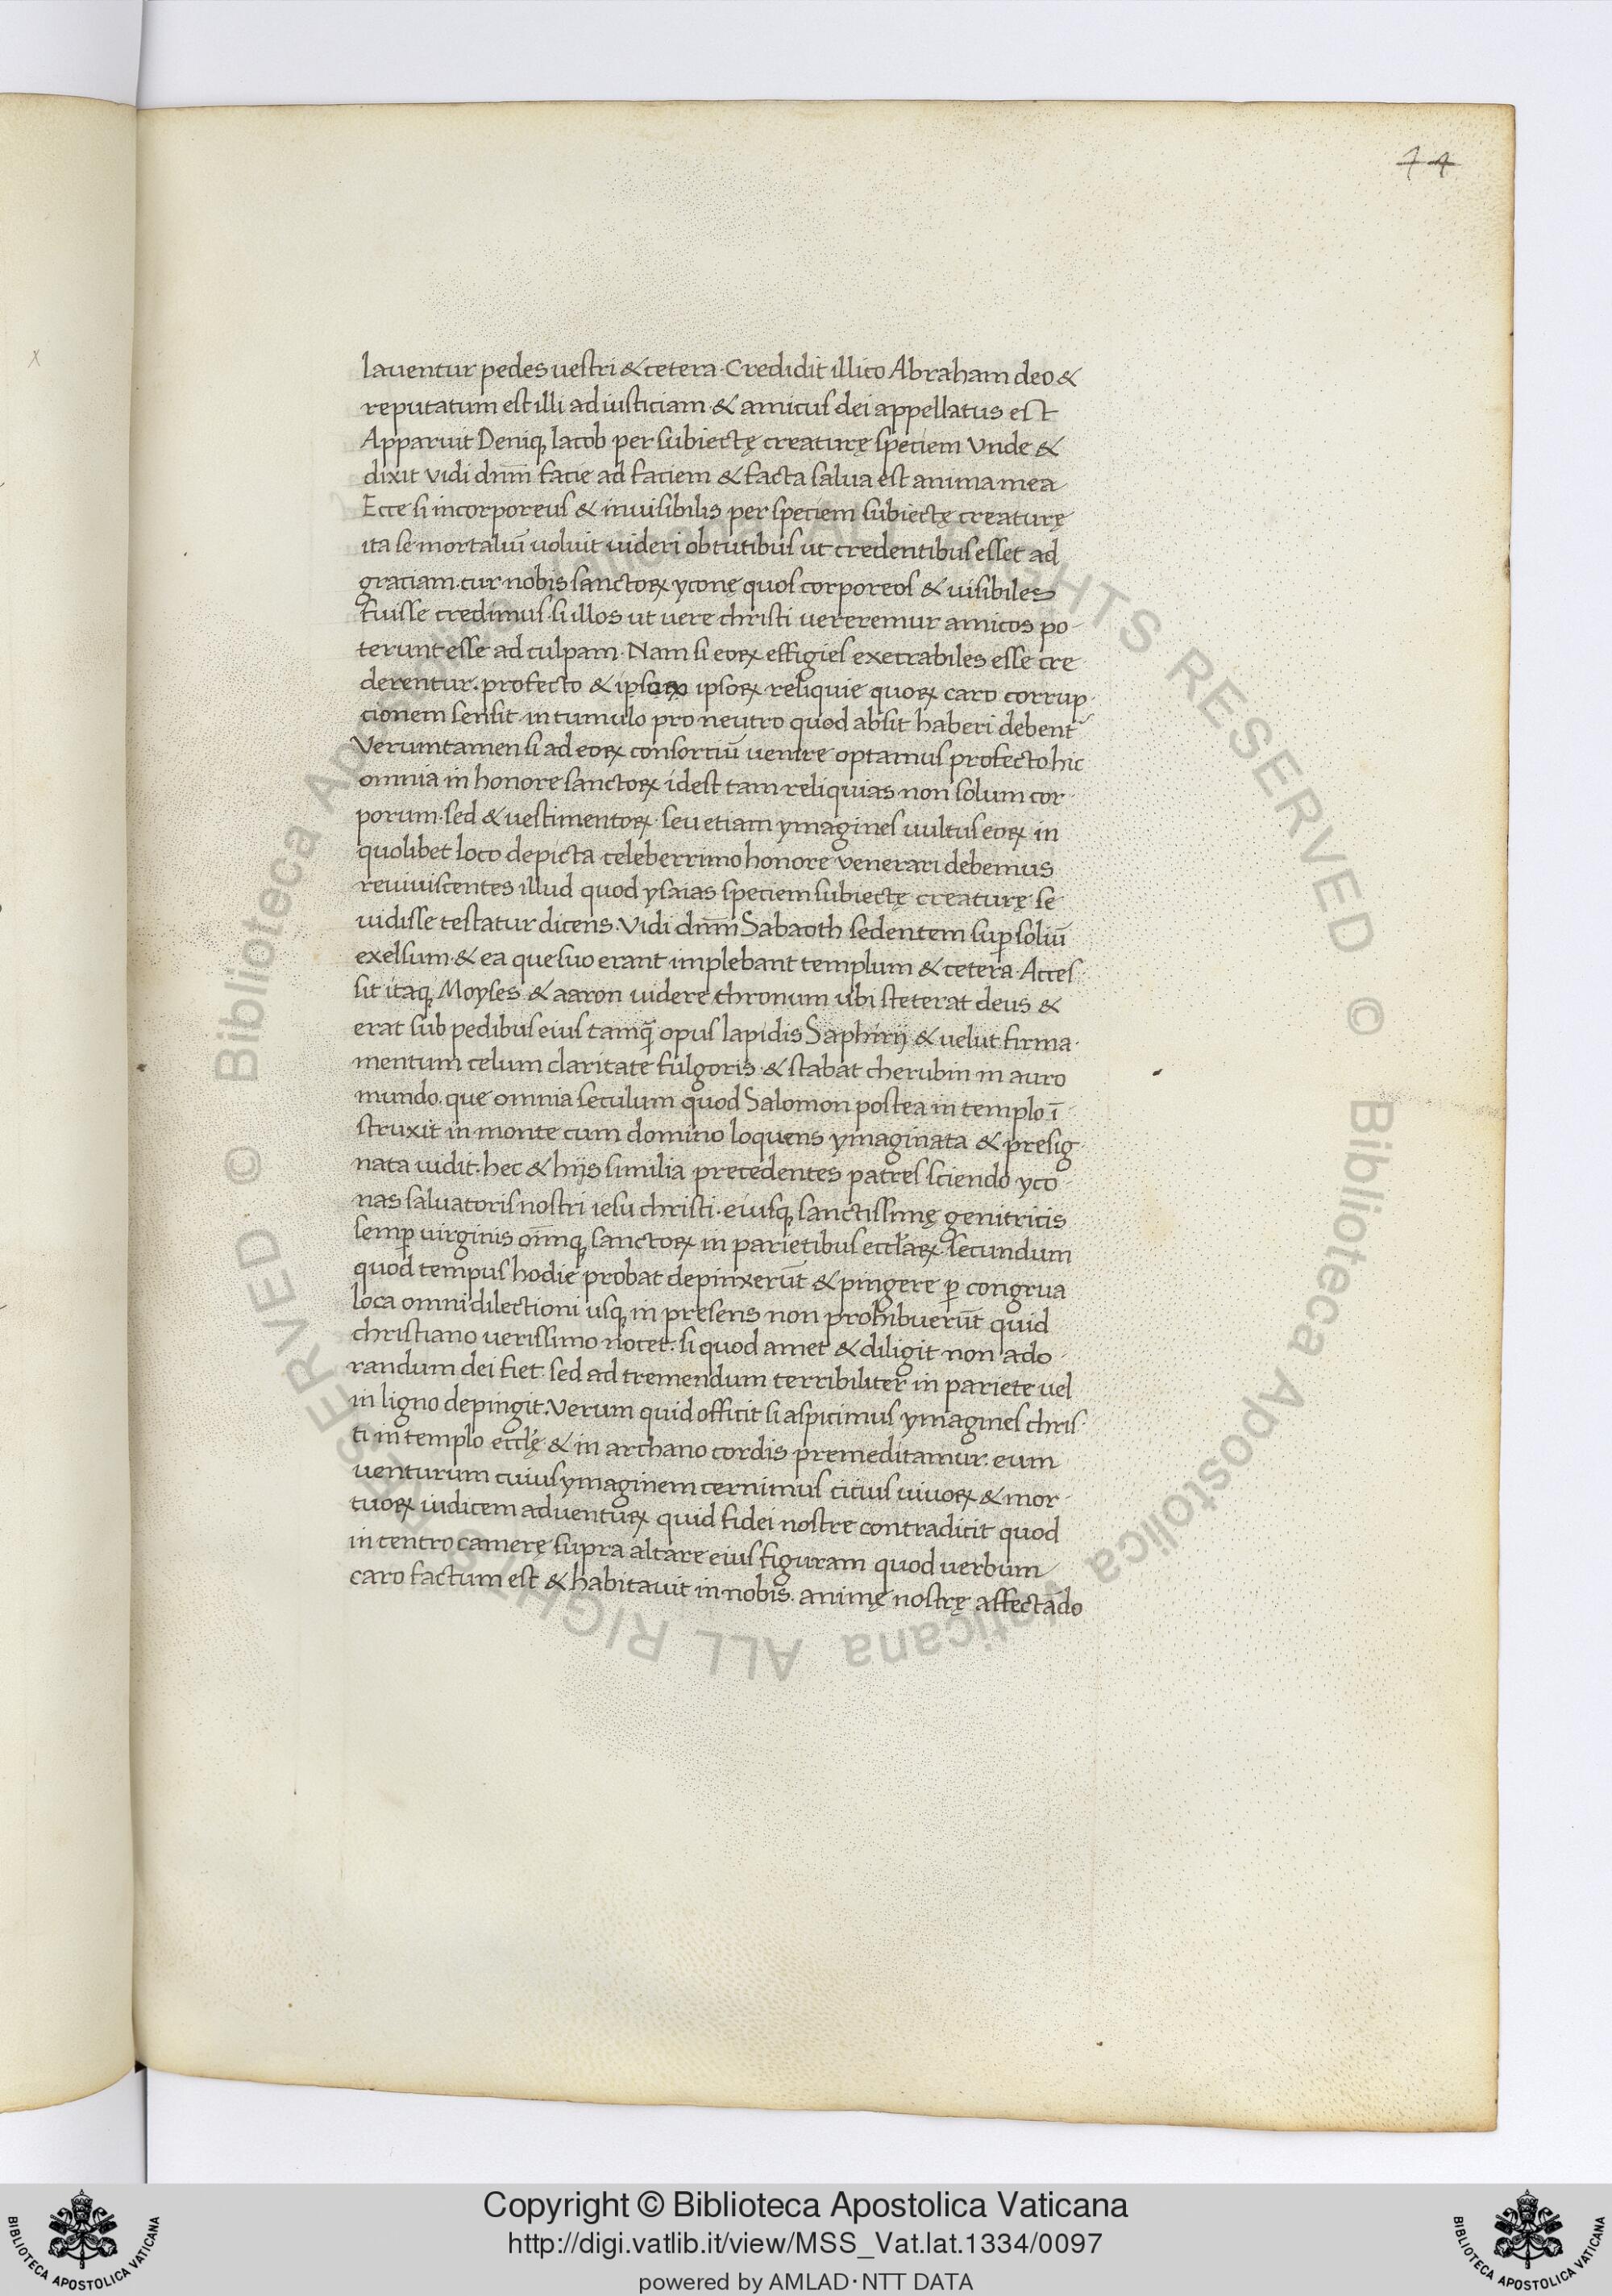 44
lauentur pedes uestri & cetera. Credidit illico Abraham deo &
reputatum est illi ad iusticiam. & amicus dei appellatus est
Apparuit Deniq; Iacob per subiectę creaturę speciem Vnde &
dixit vidi dn̄m facie ad faciem & facta salua est anima mea
Ecce si incorporeus & inuisibilis per speciem subiectę creaturę
ita se mortaliū uoluit uideri obtutibus ut credentibus esset ad
graciam. cur nobis sanctoꝝ yconę quos corporeos & uisibiles
fuisse credimus. si illos ut uere christi uereremur amicos po
terunt esse ad culpam. Nam si eoꝝ effigies execrabiles esse cre
derentur. profecto & ipsoꝝ ipsoꝝ reliquie quoꝝ caro corrup
cionem sensit. in tumulo pro neutro quod absit haberi debent
Veruntamen si ad eoꝝ consorciū uenire optamus profecto hic
omnia in honore sanctoꝝ idest tam reliquias non solum cor
porum. sed & uestimentoꝝ. seu etiam ymagines uultus eoꝝ in
quolibet loco depicta celeberrimo honore venerari debemus
reuiuiscentes illud quod ysaias speciem subiectę creaturę se
uidisse testatur dicens. Vidi dn̄m Sabaoth sedentem sup̱ soliū
exelsum. & ea que suo erant implebant templum & cetera. Acces
sit itaq; Moyses & aaron uidere thronum ubi steterat deus &
erat sub pedibus eius tamq̄ opus lapidis Saphirij & uelut firma
mentum celum claritate fulgoris. & stabat cherubin in auro
mundo. que omnia seculum quod Salomon postea in templo ī
struxit in monte cum domino loquens ymaginata & presig
nata uidit. hec & hijs similia precedentes patres sciendo yco
nas saluatoris nostri iesu christi. eiusq; sanctissimę genitricis
semp̱ uirginis om̄q; sanctoꝝ in parietibus eccl̄aꝝ. secundum
quod tempus hodie probat depinxerūt & pingere p̱ congrua
loca omni dilectioni usq; in presens non prohibuerūt quid
christiano uerissimo nocet. si quod amet & diligit non ado
randum dei fiet. sed ad tremendum terribiliter in pariete uel
in ligno depingit. Verum quid officit si aspicimus ymagines chris
ti in templo eccl̄ę & in archano cordis premeditamur. eum
uenturum cuius ymaginem cernimus cicius uiuoꝝ & mor
tuoꝝ iudicem aduentuꝝ quid fidei nostre contradicit quod
in centro camerę supra altare eius figuram quod uerbum
caro factum est & habitauit in nobis. animę nostrę affectado
© Biblioteca Apostolica Vaticana ALL RIGHTS RESERVED
© Biblioteca Apostolica Vaticana ALL RIGHTS RESERVED
BIBLIOTECA APOSTOLICA VATICANA
Copyright © Biblioteca Apostolica Vaticana
http://digi.vatlib.it/view/MSS_Vat.lat.1334/0097
powered by AMLAD·NTT DATA
BIBLIOTECA APOSTOLICA VATICANA